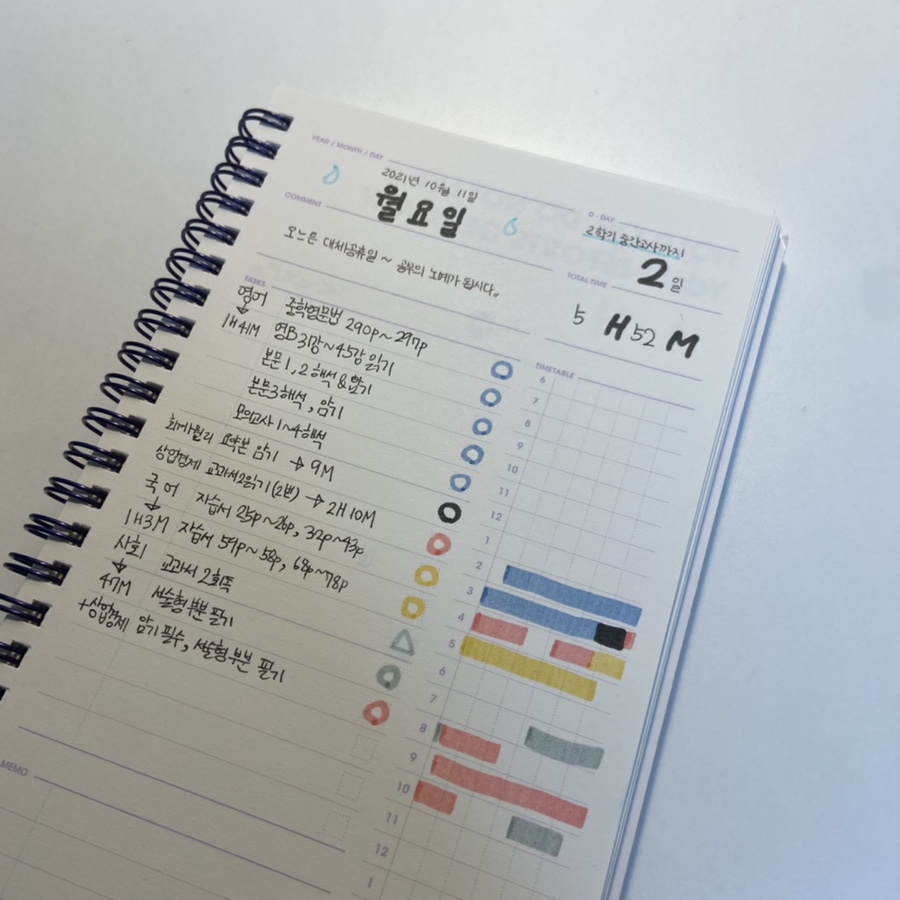 YEAR / MONTH / DAY
2021년 10월 11일
월요일
D - DAY
2학기 중간고사까지
2일
COMMENT
오느은 대체공휴일 ~ 공부의 노예가 됩시다.
TOTAL TIME
5 H 52 M
TASKS
영어 중학영문법 290p~297p
1H41M 영B 31강~45강 읽기
본문 1, 2 해석 & 암기
본문3 해석, 암기
모의고사 1~4 해석
회계원리 요약본 암기 → 9M
상업경제 교과서 2읽기 (2번) → 2H 10M
국어 자습서 25p~26p, 32p~43p
1H3M 자습서 54p~58p, 68p~78p
사회 교과서 2회독
47M 서술형 부분 필기
+상업경제 암기 필수, 서술형 부분 필기
MEMO
TIMETABLE
6
7
8
9
10
11
12
1
2
3
4
5
6
7
8
9
10
11
12
1